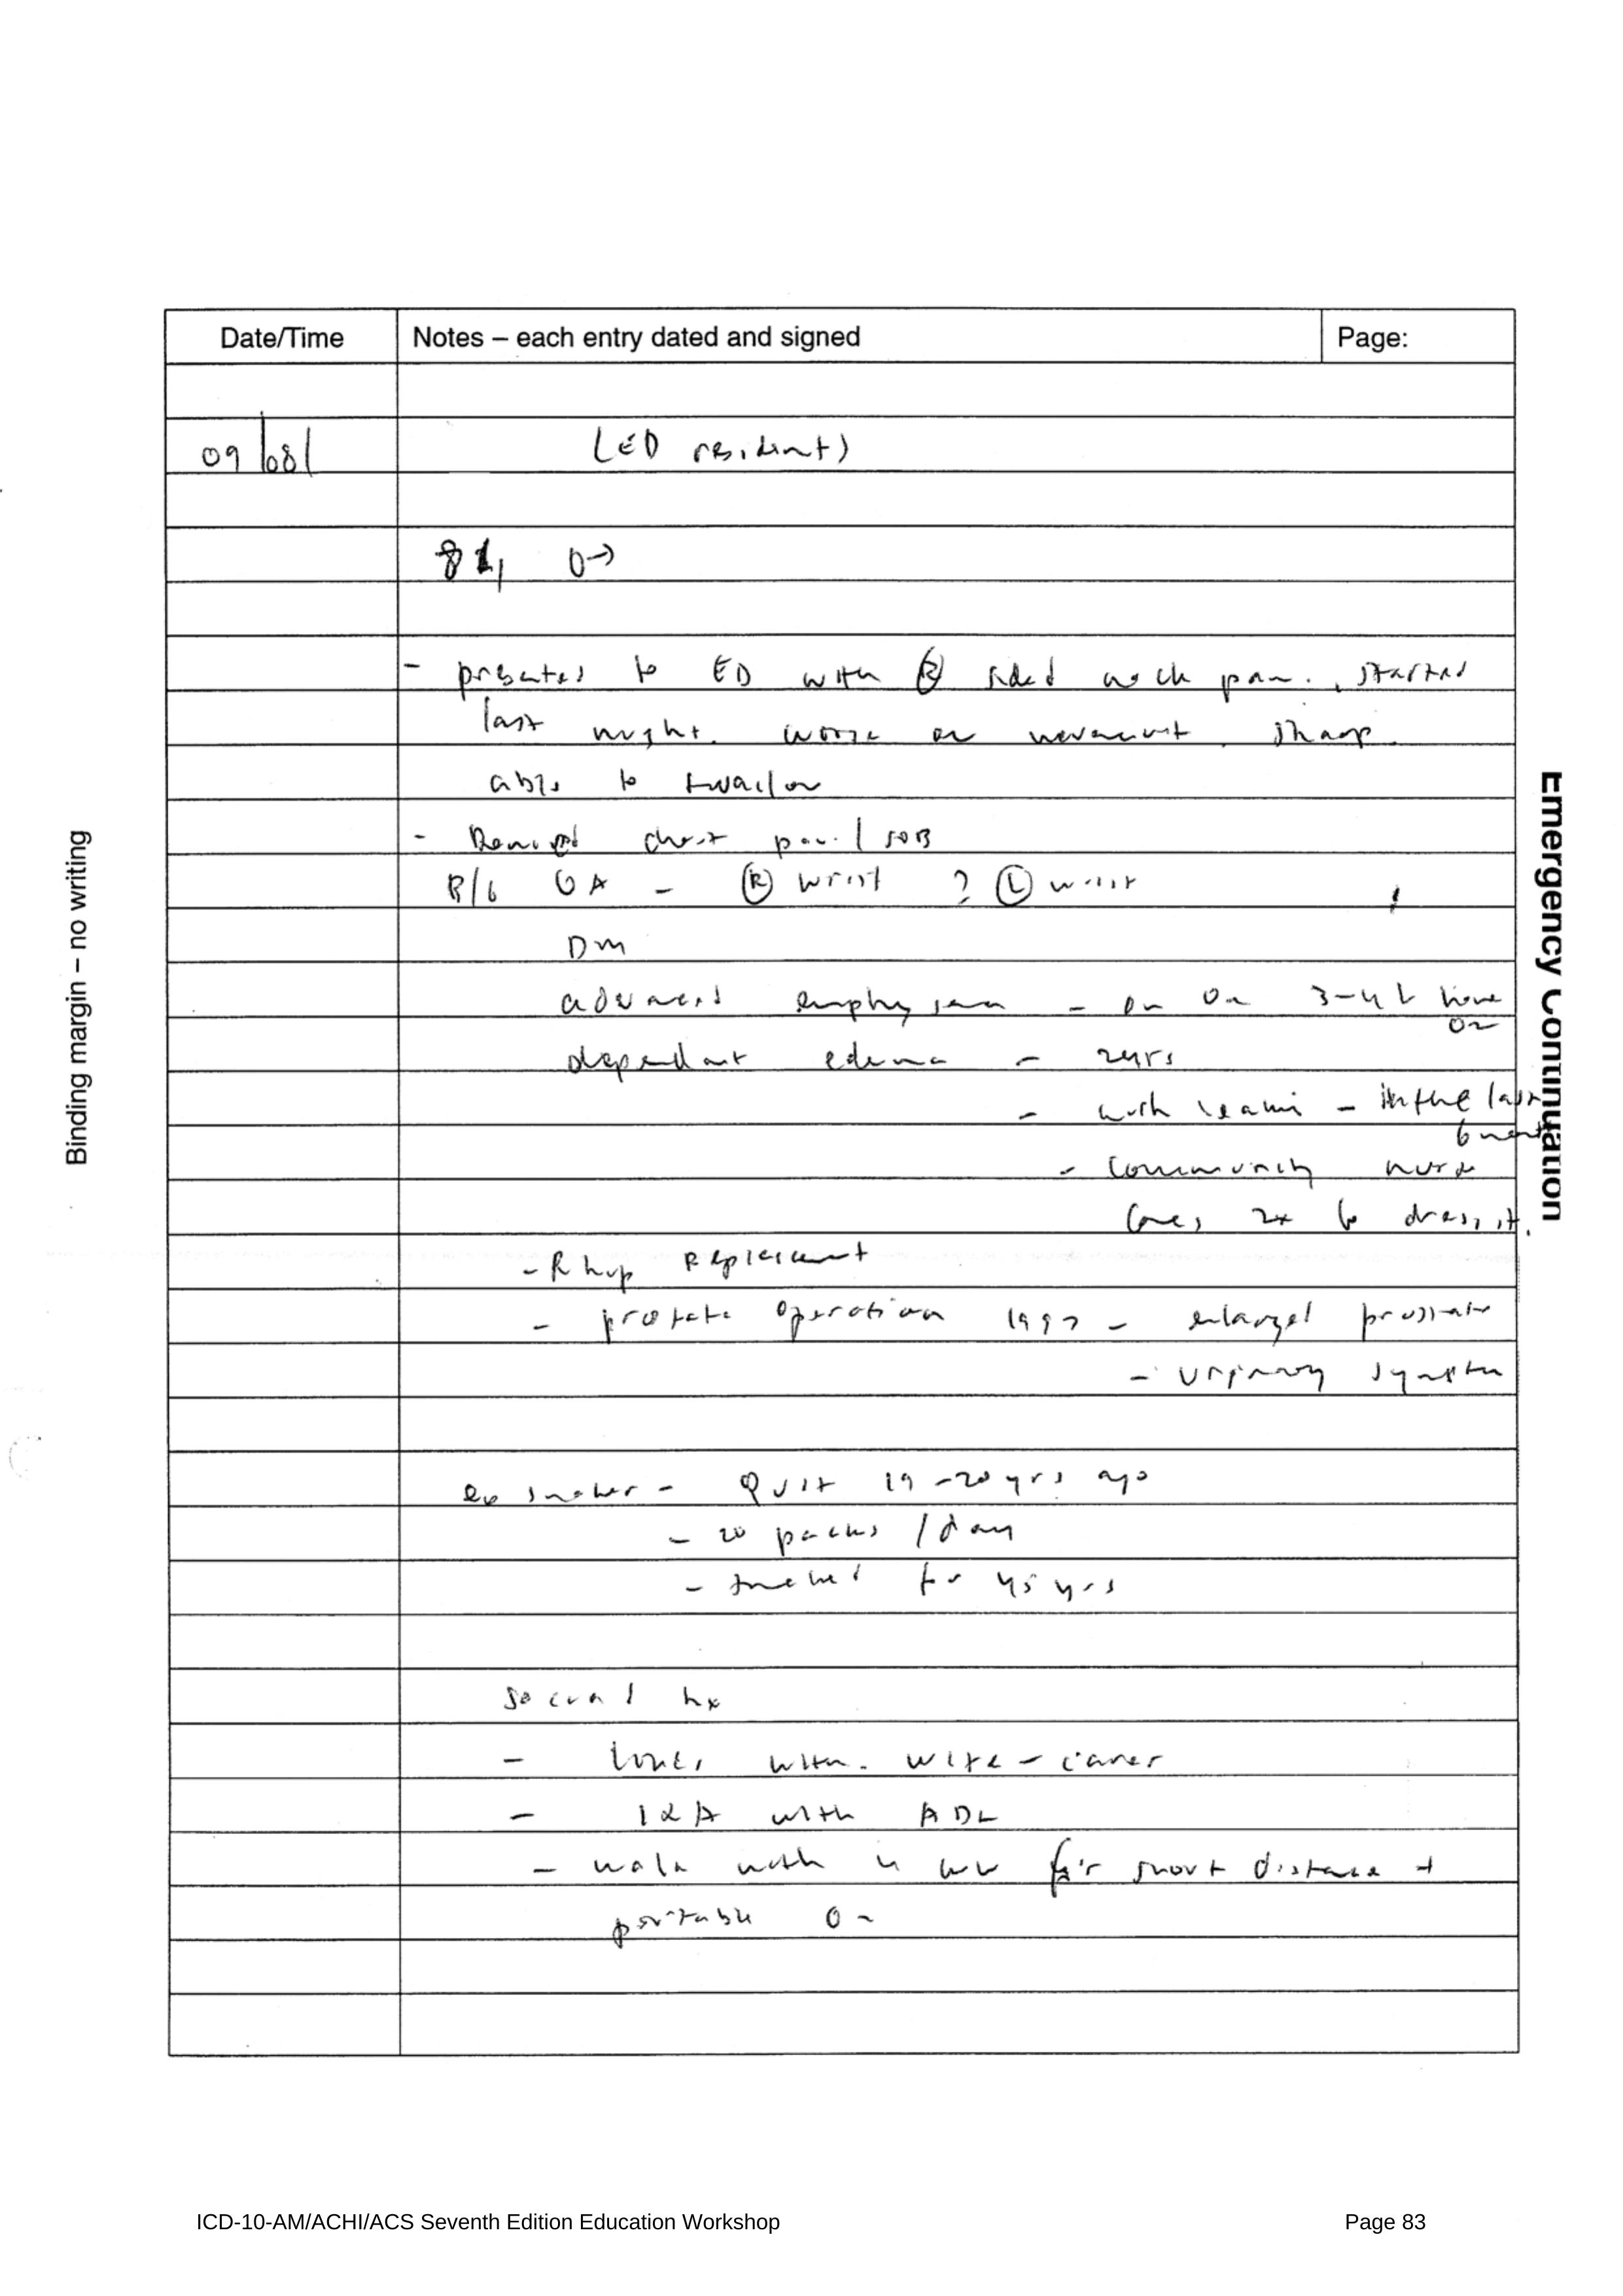 Date/Time Notes – each entry dated and signed Page:
09/08/ (ED resident)
81, ♂
- presented to ED with Ⓡ sided neck pain. started
last night. worse on movement. sharp
able to swallow
- Denied chest pain / SOB
B/G OA - Ⓡ wrist ? Ⓛ wrist
DM
advanced emphysema - on O2 3-4L home
O2
dependant edema - 2yrs
- with leaking - in the last
6 mont
- community nurse
comes 2x to dress it.
- R hip Replacement
- prostate operation 199 - enlarged prostate
- urinary sympton
ex smoker - Quit 19-20 yrs ago
- 20 packs / day
- smoked for 45 yrs
social hx
- lives with wife - carer
- with ADL
- walk with 4 ww for short distance +
portable O2
Binding margin – no writing
Emergency Continuation
ICD-10-AM/ACHI/ACS Seventh Edition Education Workshop Page 83